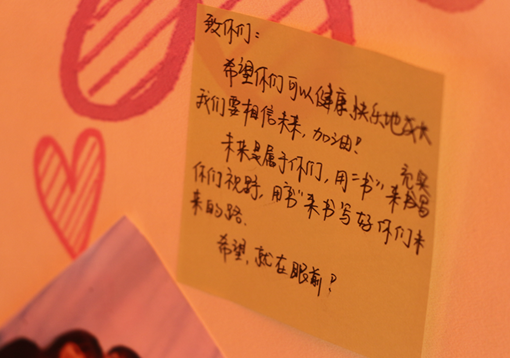 致你们：
希望你们可以健康、快乐地成长
我们要相信未来，加油！
未来是属于你们，用“书”来书写 充实
你们视野，用“书”来书写好你们未
来的路.
希望，就在眼前！